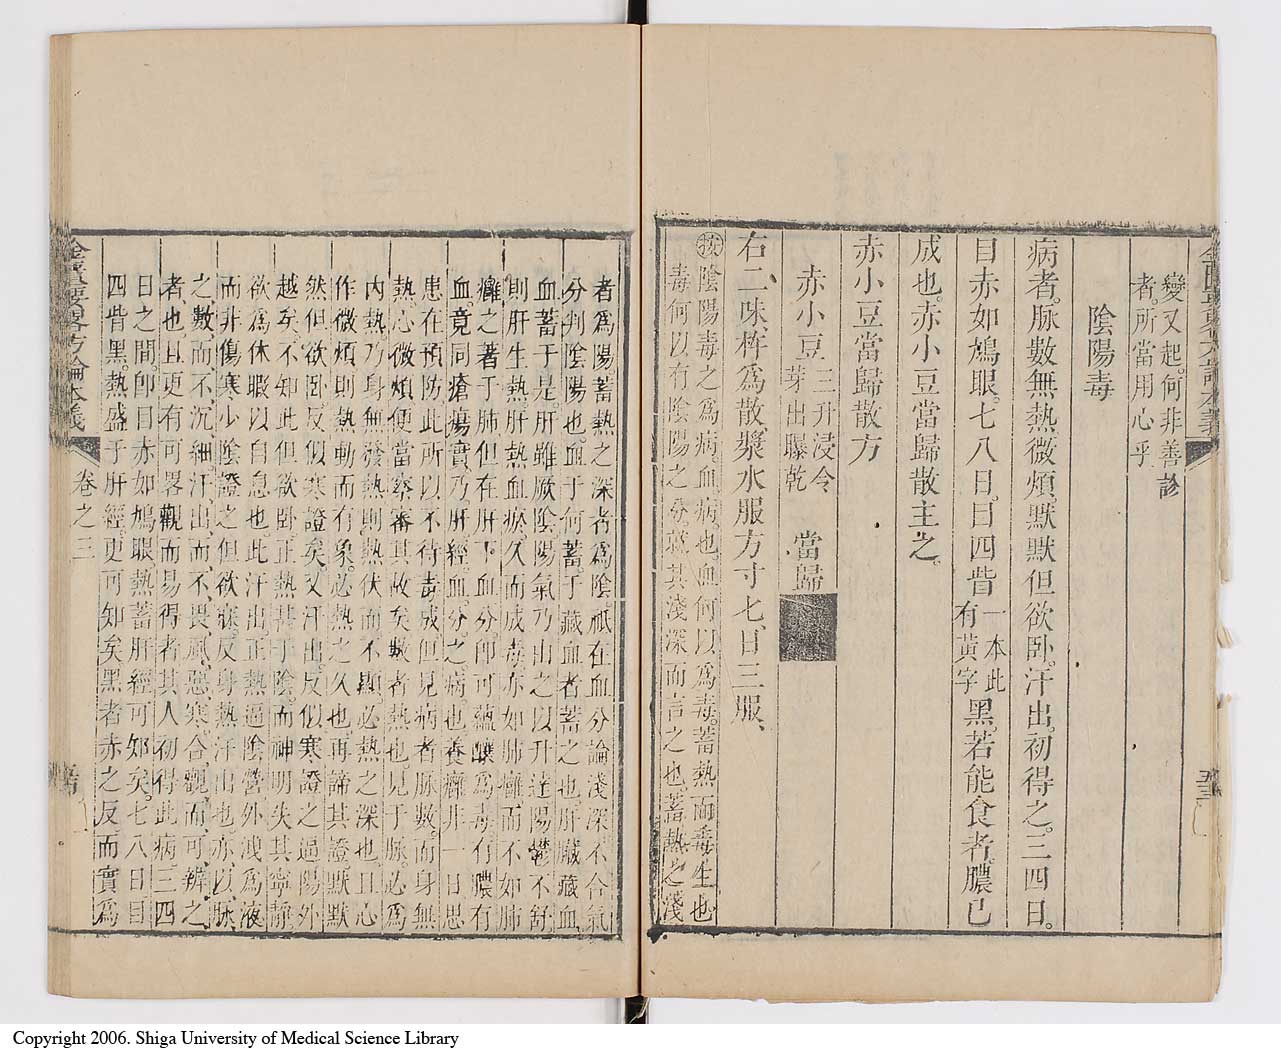 變又起何非善診
者所當用心乎
陰陽毒
病者。脉數無熱微煩默默但欲卧。汗出。初得之。三四日。
目赤如鳩眼。七八日。目四眥一本此有黃字黑。若能食者。膿已
成也。赤小豆當歸散主之。
赤小豆當歸散方
赤小豆三升浸令芽出曝乾 當歸
右二味、杵爲散、漿水服方寸七、日三服、
按陰陽毒之爲病血病也血何以爲毒蓄熱而毒生也
毒何以有陰陽之分就其淺深而言之也蓄熱之淺
者爲陽蓄熱之深者爲陰祇在血分論淺深不合氣
分判陰陽也血于何蓄于藏血者蓄之也肝臟藏血
血蓄于是肝雖厥陰陽氣乃由之以升達陽鬱不舒
則肝生熱肝熱血瘀久而成毒亦如肺癰而不如肺
癰之著于肺但在肝下血分卽可蘊釀爲毒有膿有
血竟同瘡瘍實乃肝經血分之病也養癰非一日思
患在預防此所以不待毒成但見病者脉數而身無
熱心微煩便當察審其故矣數者熱也見于脉必爲
內熱乃身無發熱則熱伏而不顯必熱之深也且心
作微煩則熱動而有象必熱之久也再諦其證默默
然但欲卧反似寒證矣又汗出反似寒證之逼陽外
越矣不知此但欲卧正熱甚于陰而神明失其寧靜
欲爲休暇以自息也此汗出正熱逼陰營外洩爲液
而非傷寒少陰證之但欲寐反身熱汗出也亦以脉
之數而不沉細汗出而不畏風惡寒合觀而可辨之
者也且更有可畧觀而易得者其人初得此病三四
日之間卽目赤如鳩眼熱蓄肝經可知矣七八日目
四眥黑熱盛于肝經更可知矣黑者赤之反而實爲
金匱要畧方論本義
卷之三
Copyright 2006. Shiga University of Medical Science Library